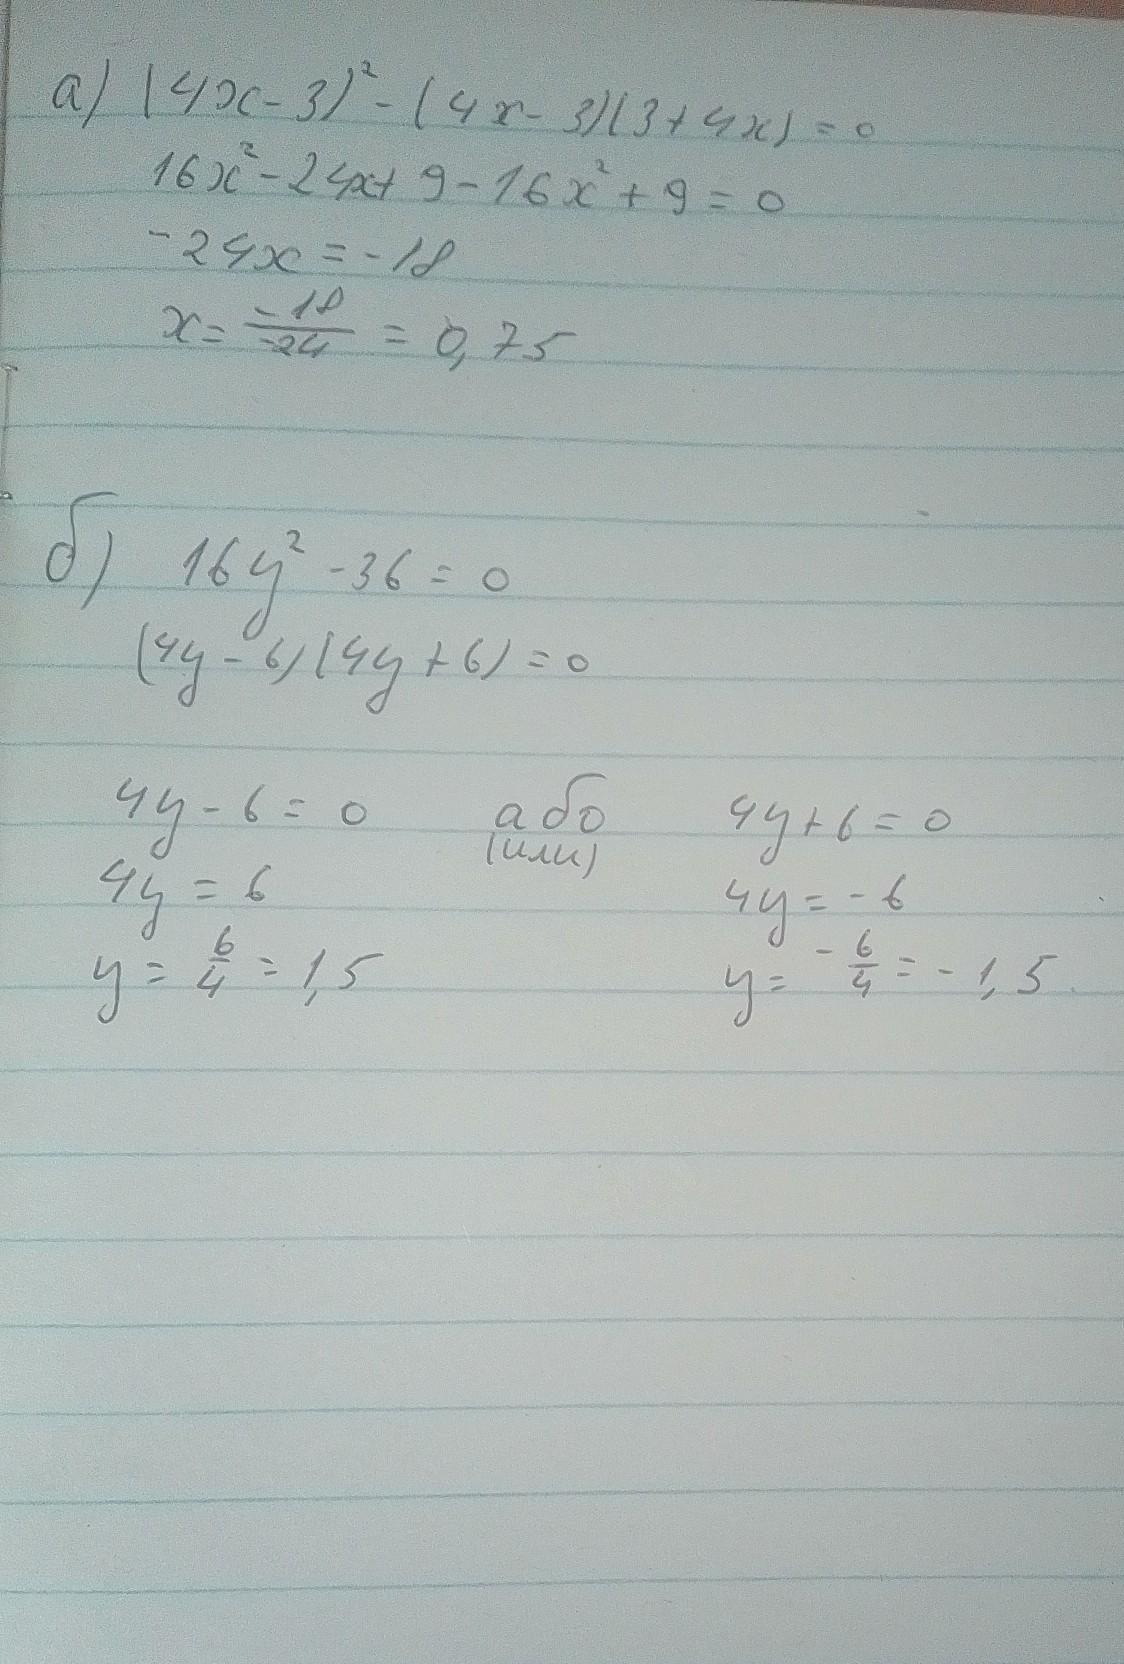 а) (4x-3)² - (4x-3)(3+4x) = 0
16x² - 24x + 9 - 16x² + 9 = 0
-24x = -18
x = -18/-24 = 0,75
б) 16y² - 36 = 0
(4y - 6)(4y + 6) = 0
4y - 6 = 0 або 4y + 6 = 0
(или)
4y = 6 4y = -6
y = 6/4 = 1,5 y = -6/4 = -1,5